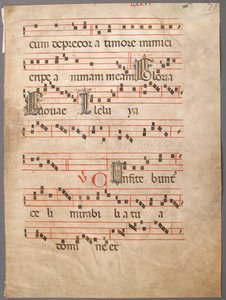 cum deprecor a timore inimici
eripe a nimam meam Gloria
Euouae Alelu ya
Confite bunt
ce li mirabi li a tu a
domi ne et